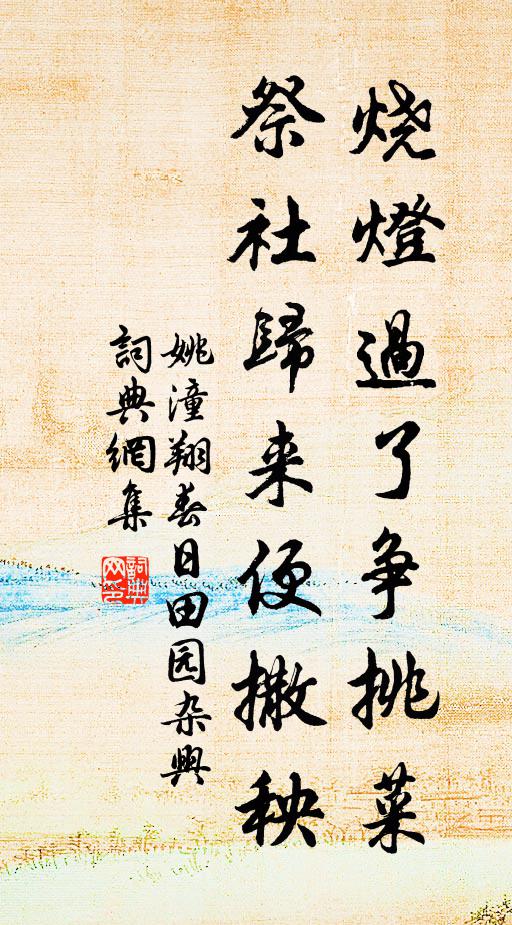 烧燈過了争挑菜
祭社歸来便撒秧
姚潼翔春日田园杂興
詞典網集